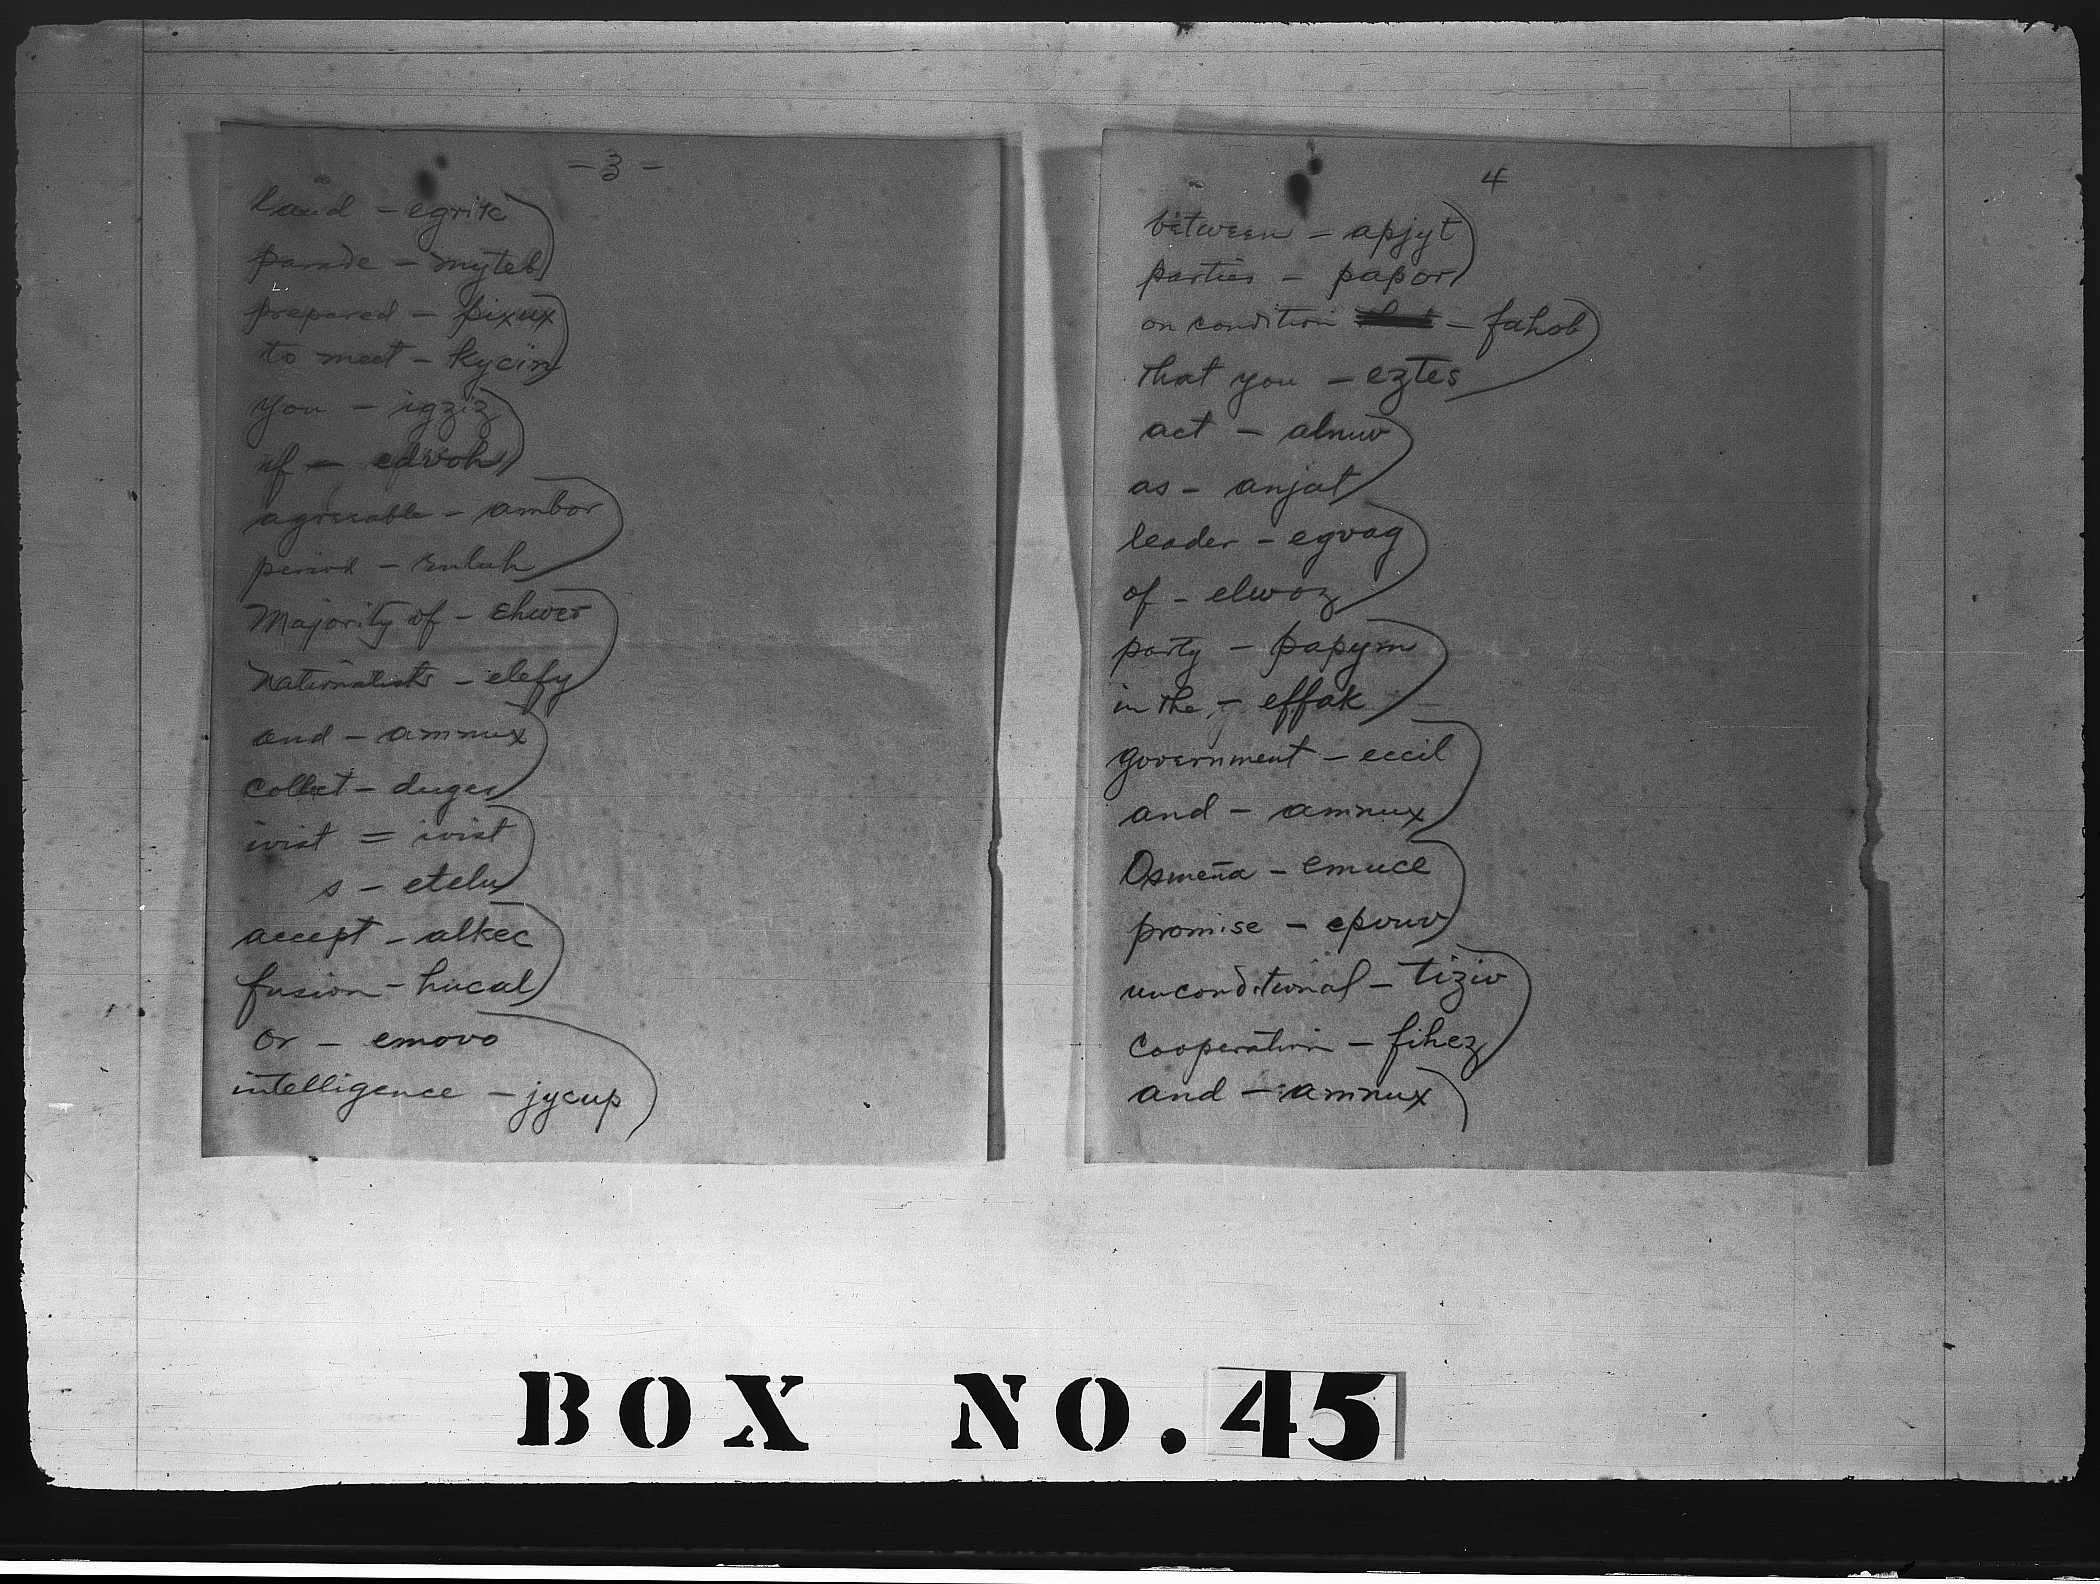 - 3 -
land - egrik
parade - myteb
prepared - pixux
to meet - kycin
you - igziz
if - edvoh
agreeable - ambor
period - snluh
Majority of - ehwes
Nationalists - elefy
and - amnux
Collect - duges
ivist = ivist
s - etelu
accept - alkec
fusion - hucal
or - emovo
intelligence - jycup
4
between - apjyt
parties - papor
on condition - fahob
that you - eztes
act - alnuv
as - anjat
leader - egvag
of - elwoz
party - papym
in the - effak
government - eccil
and - amnux
Osmeña - emuce
promise - epvuv
unconditional - tiziv
Cooperation - fihez
and - amnux
BOX NO. 45